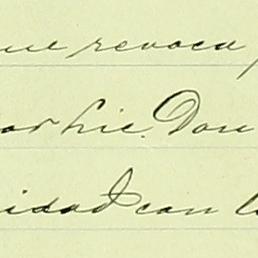 que revoca
por hic. Don
idad con l